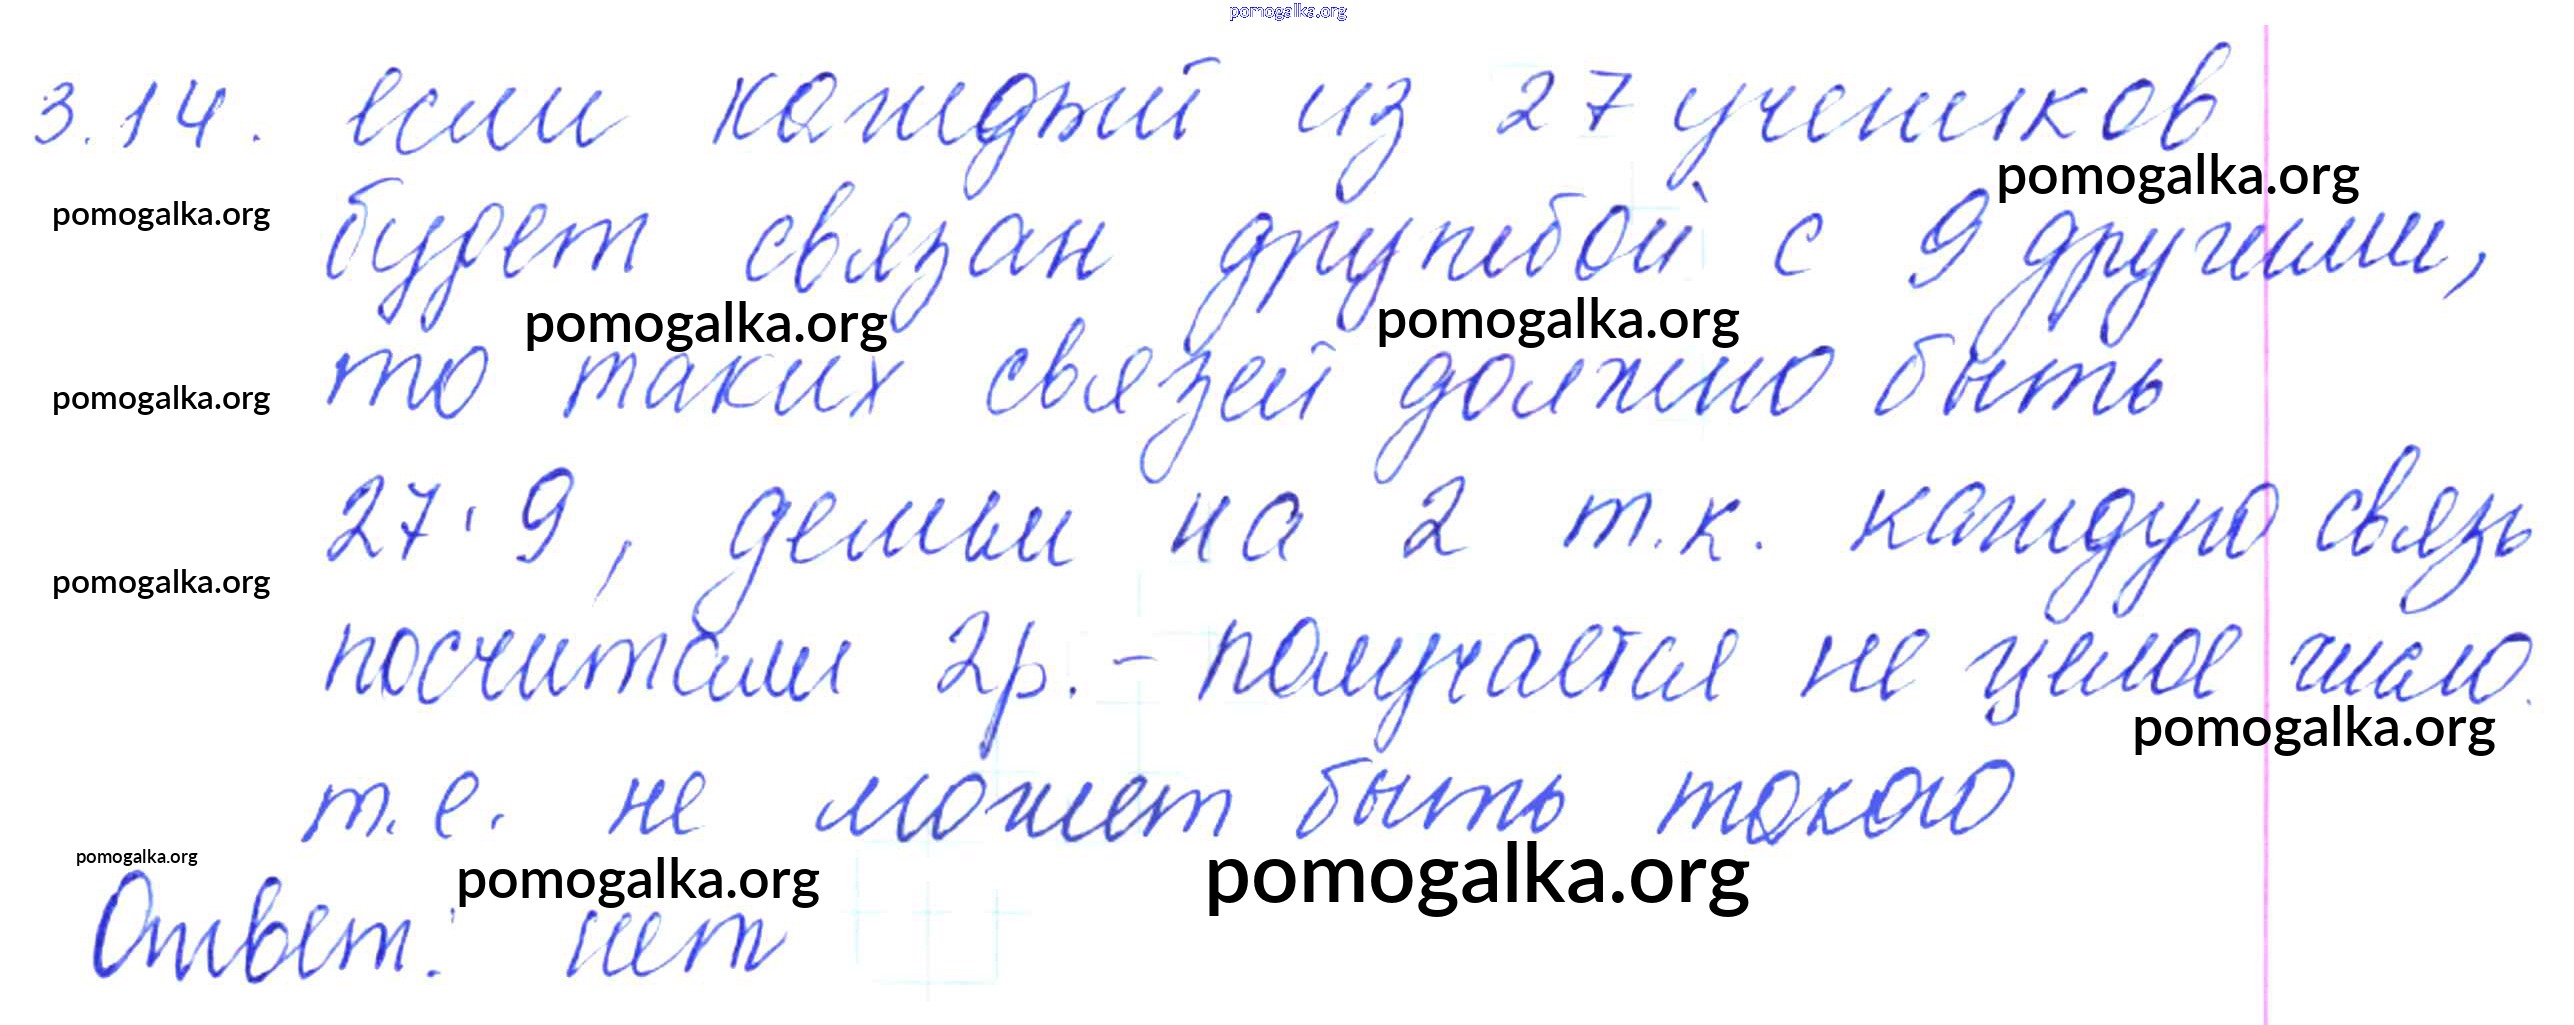 pomogalka.org
3.14. Если каждый из 27 учеников
pomogalka.org
pomogalka.org
будет связан дружбой с 9 другими,
pomogalka.org
pomogalka.org
то таких связей должно быть
pomogalka.org
27·9, делим на 2 т.к. каждую связь
pomogalka.org
посчитали 2р. - получается не целое число.
pomogalka.org
т.е. не может быть такого
pomogalka.org
pomogalka.org
pomogalka.org
Ответ: нет